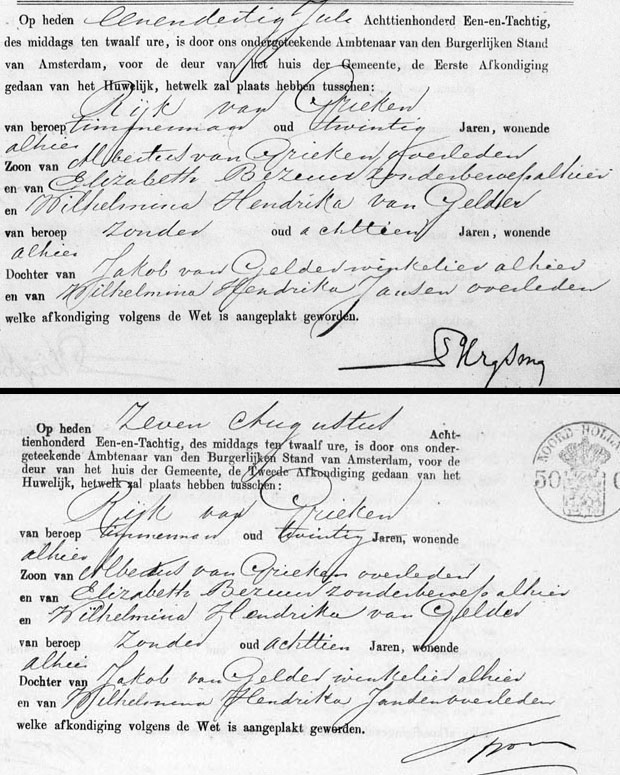 Op heden eenendertig Juli Achttienhonderd Een-en-Tachtig,
des middags ten twaalf ure, is door ons ondergeteekende Ambtenaar van den Burgerlijken Stand
van Amsterdam, voor de deur van het huis der Gemeente, de Eerste Afkondiging
gedaan van het Huwelijk, hetwelk zal plaats hebben tusschen:
Rijk van Grieken
van beroep timmerman oud twintig Jaren, wonende
alhier
Zoon van Albertus van Grieken, overleden
en van Elizabeth Bezuur zonder beroep alhier
en Wilhelmina Hendrika van Gelder
van beroep zonder oud achttien Jaren, wonende
alhier
Dochter van Jakob van Gelder winkelier alhier
en van Wilhelmina Hendrika Jansen overleden
welke afkondiging volgens de Wet is aangeplakt geworden.
Op heden Zeven Augustus Acht-
tienhonderd Een-en-Tachtig, des middags ten twaalf ure, is door ons onder-
geteekende Ambtenaar van den Burgerlijken Stand van Amsterdam, voor de
deur van het huis der Gemeente, de Tweede Afkondiging gedaan van het
Huwelijk, hetwelk zal plaats hebben tusschen:
NOORD-HOLLA
50
Rijk van Grieken
van beroep timmerman oud twintig Jaren, wonende
alhier
Zoon van Albertus van Grieken overleden
en van Elizabeth Bezuur zonder beroep alhier
en Wilhelmina Hendrika van Gelder
van beroep zonder oud achttien Jaren, wonende
alhier
Dochter van Jakob van Gelder winkelier alhier
en van Wilhelmina Hendrika Jansen overleden
welke afkondiging volgens de Wet is aangeplakt geworden.